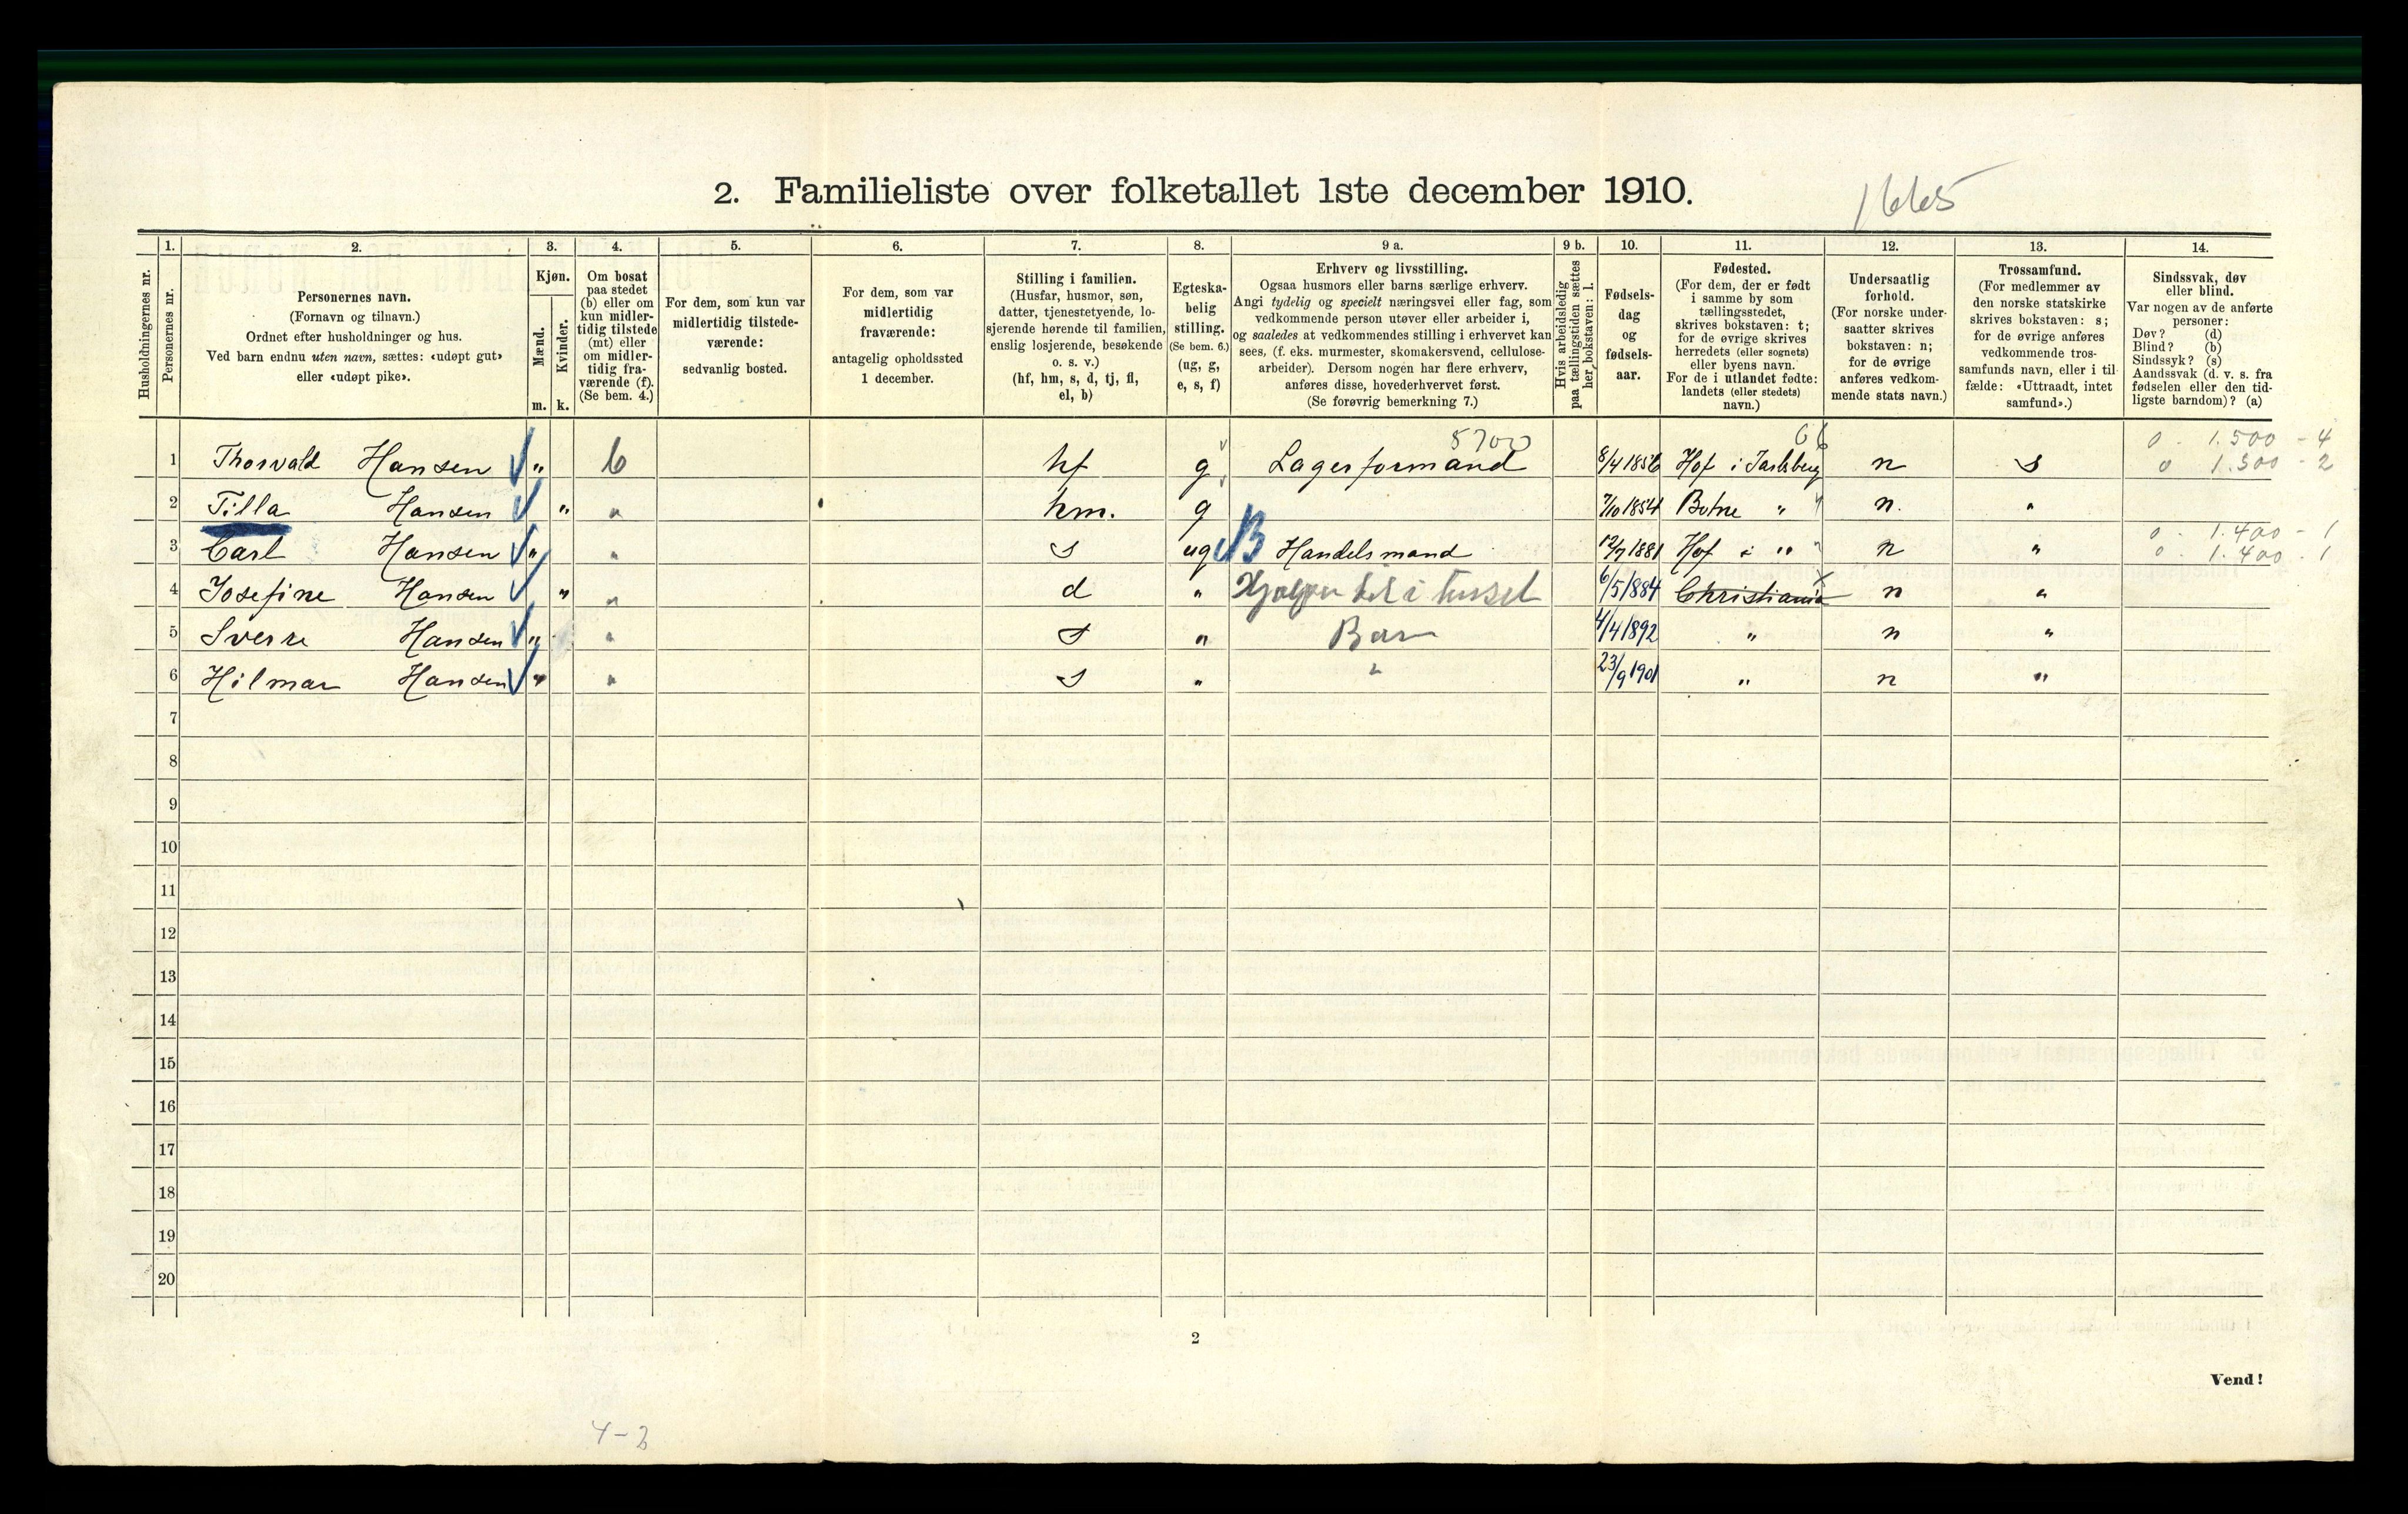 2. Familieliste over folketallet 1ste december 1910.
1665
Husholdningernes nr.
1.
Personernes nr.
2.
Personernes navn.
(Fornavn og tilnavn.)
Ordnet efter husholdninger og hus.
Ved barn endnu uten navn, sættes: «udøpt gut»
eller «udøpt pike».
3.
Kjøn.
Mænd.
Kvinder.
m. k.
4.
Om bosat
paa stedet
(b) eller om
kun midler-
tidig tilstede
(mt) eller
om midler-
tidig fra-
værende (f).
(Se bem. 4.)
5.
For dem, som kun var
midlertidig tilstede-
værende:
sedvanlig bosted.
6.
For dem, som var
midlertidig
fraværende:
antagelig opholdssted
1 december.
7.
Stilling i familien.
(Husfar, husmor, søn,
datter, tjenestetyende, lo-
sjerende hørende til familien,
enslig losjerende, besøkende
o. s. v.)
(hf, hm, s, d, tj, fl,
el, b)
8.
Egteska-
belig
stilling.
(Se bem. 6.)
(ug, g,
e, s, f)
9 a.
Erhverv og livsstilling.
Ogsaa husmors eller barns særlige erhverv.
Angi tydelig og specielt næringsvei eller fag, som
vedkommende person utøver eller arbeider i,
og saaledes at vedkommendes stilling i erhvervet kan
sees, (f. eks. murmester, skomakersvend, cellulose-
arbeider). Dersom nogen har flere erhverv,
anføres disse, hovederhvervet først.
(Se forøvrig bemerkning 7.)
9 b.
Hvis arbeidsledig
paa tællingstiden sættes
her bokstaven: l.
10.
Fødsels-
dag
og
fødsels-
aar.
11.
Fødested.
(For dem, der er født
i samme by som
tællingsstedet,
skrives bokstaven: t;
for de øvrige skrives
herredets (eller sognets)
eller byens navn.
For de i utlandet fødte:
landets (eller stedets)
navn.)
12.
Undersaatlig
forhold.
(For norske under-
saatter skrives
bokstaven: n;
for de øvrige
anføres vedkom-
mende stats navn.)
13.
Trossamfund.
(For medlemmer av
den norske statskirke
skrives bokstaven: s;
for de øvrige anføres
vedkommende tros-
samfunds navn, eller i til-
fælde: «Uttraadt, intet
samfund».)
14.
Sindssvak, døv
eller blind.
Var nogen av de anførte
personer:
Døv? (d)
Blind? (b)
Sindssyk? (s)
Aandssvak (d. v. s. fra
fødselen eller den tid-
ligste barndom)? (a)
5700 0 - 1.500 - 4
1 Thorvald Hansen " b hf g Lagerformand 8/4 1856 Hof i Jarlsberg n s 0 1.500 - 2
2 Tilla Hansen " " hm. g 7/10 1854 Botne " n. "
0 - 1.400 - 1
3 Carl Hansen " " s ug B Handelsmand 12/7 1881 Hof i " n " 0 - 1.400 - 1
4 Josefine Hansen " " d " Hjælper til i huset 6/5 1884 Christiania n "
5 Sverre Hansen " " s " Barn 4/4 1892 " n "
6 Hilmar Hansen " " s " " 23/9 1901 " n "
7
8
9
10
11
12
13
14
15
16
17
18
19
20
2
Vend!
4-2